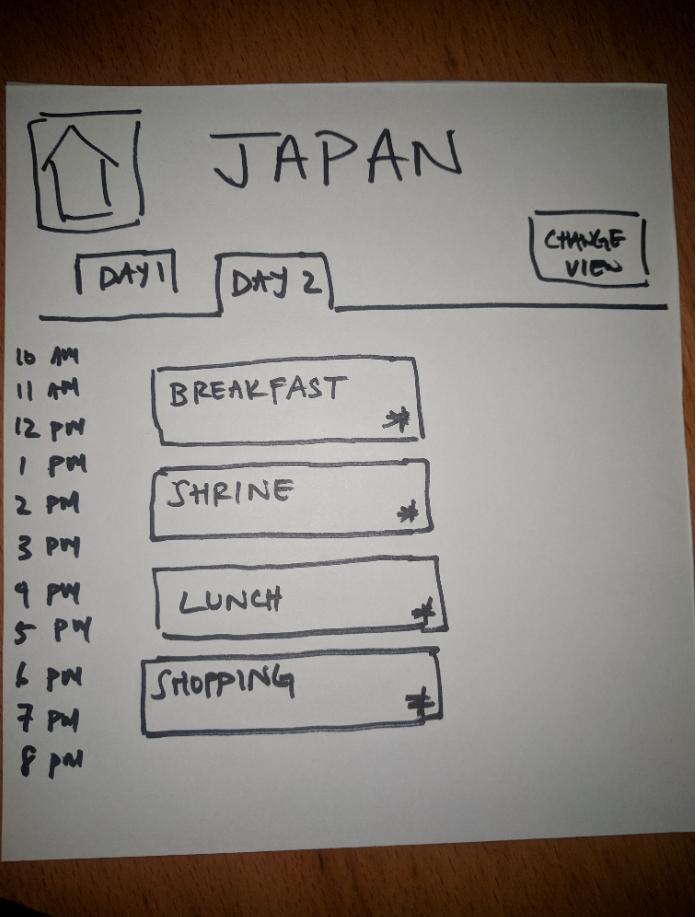 JAPAN
CHANGE
VIEW
DAY 1
DAY 2
10 AM
11 AM
12 PM
1 PM
2 PM
3 PM
4 PM
5 PM
6 PM
7 PM
8 PM
BREAKFAST
*
SHRINE
*
LUNCH
*
SHOPPING
*